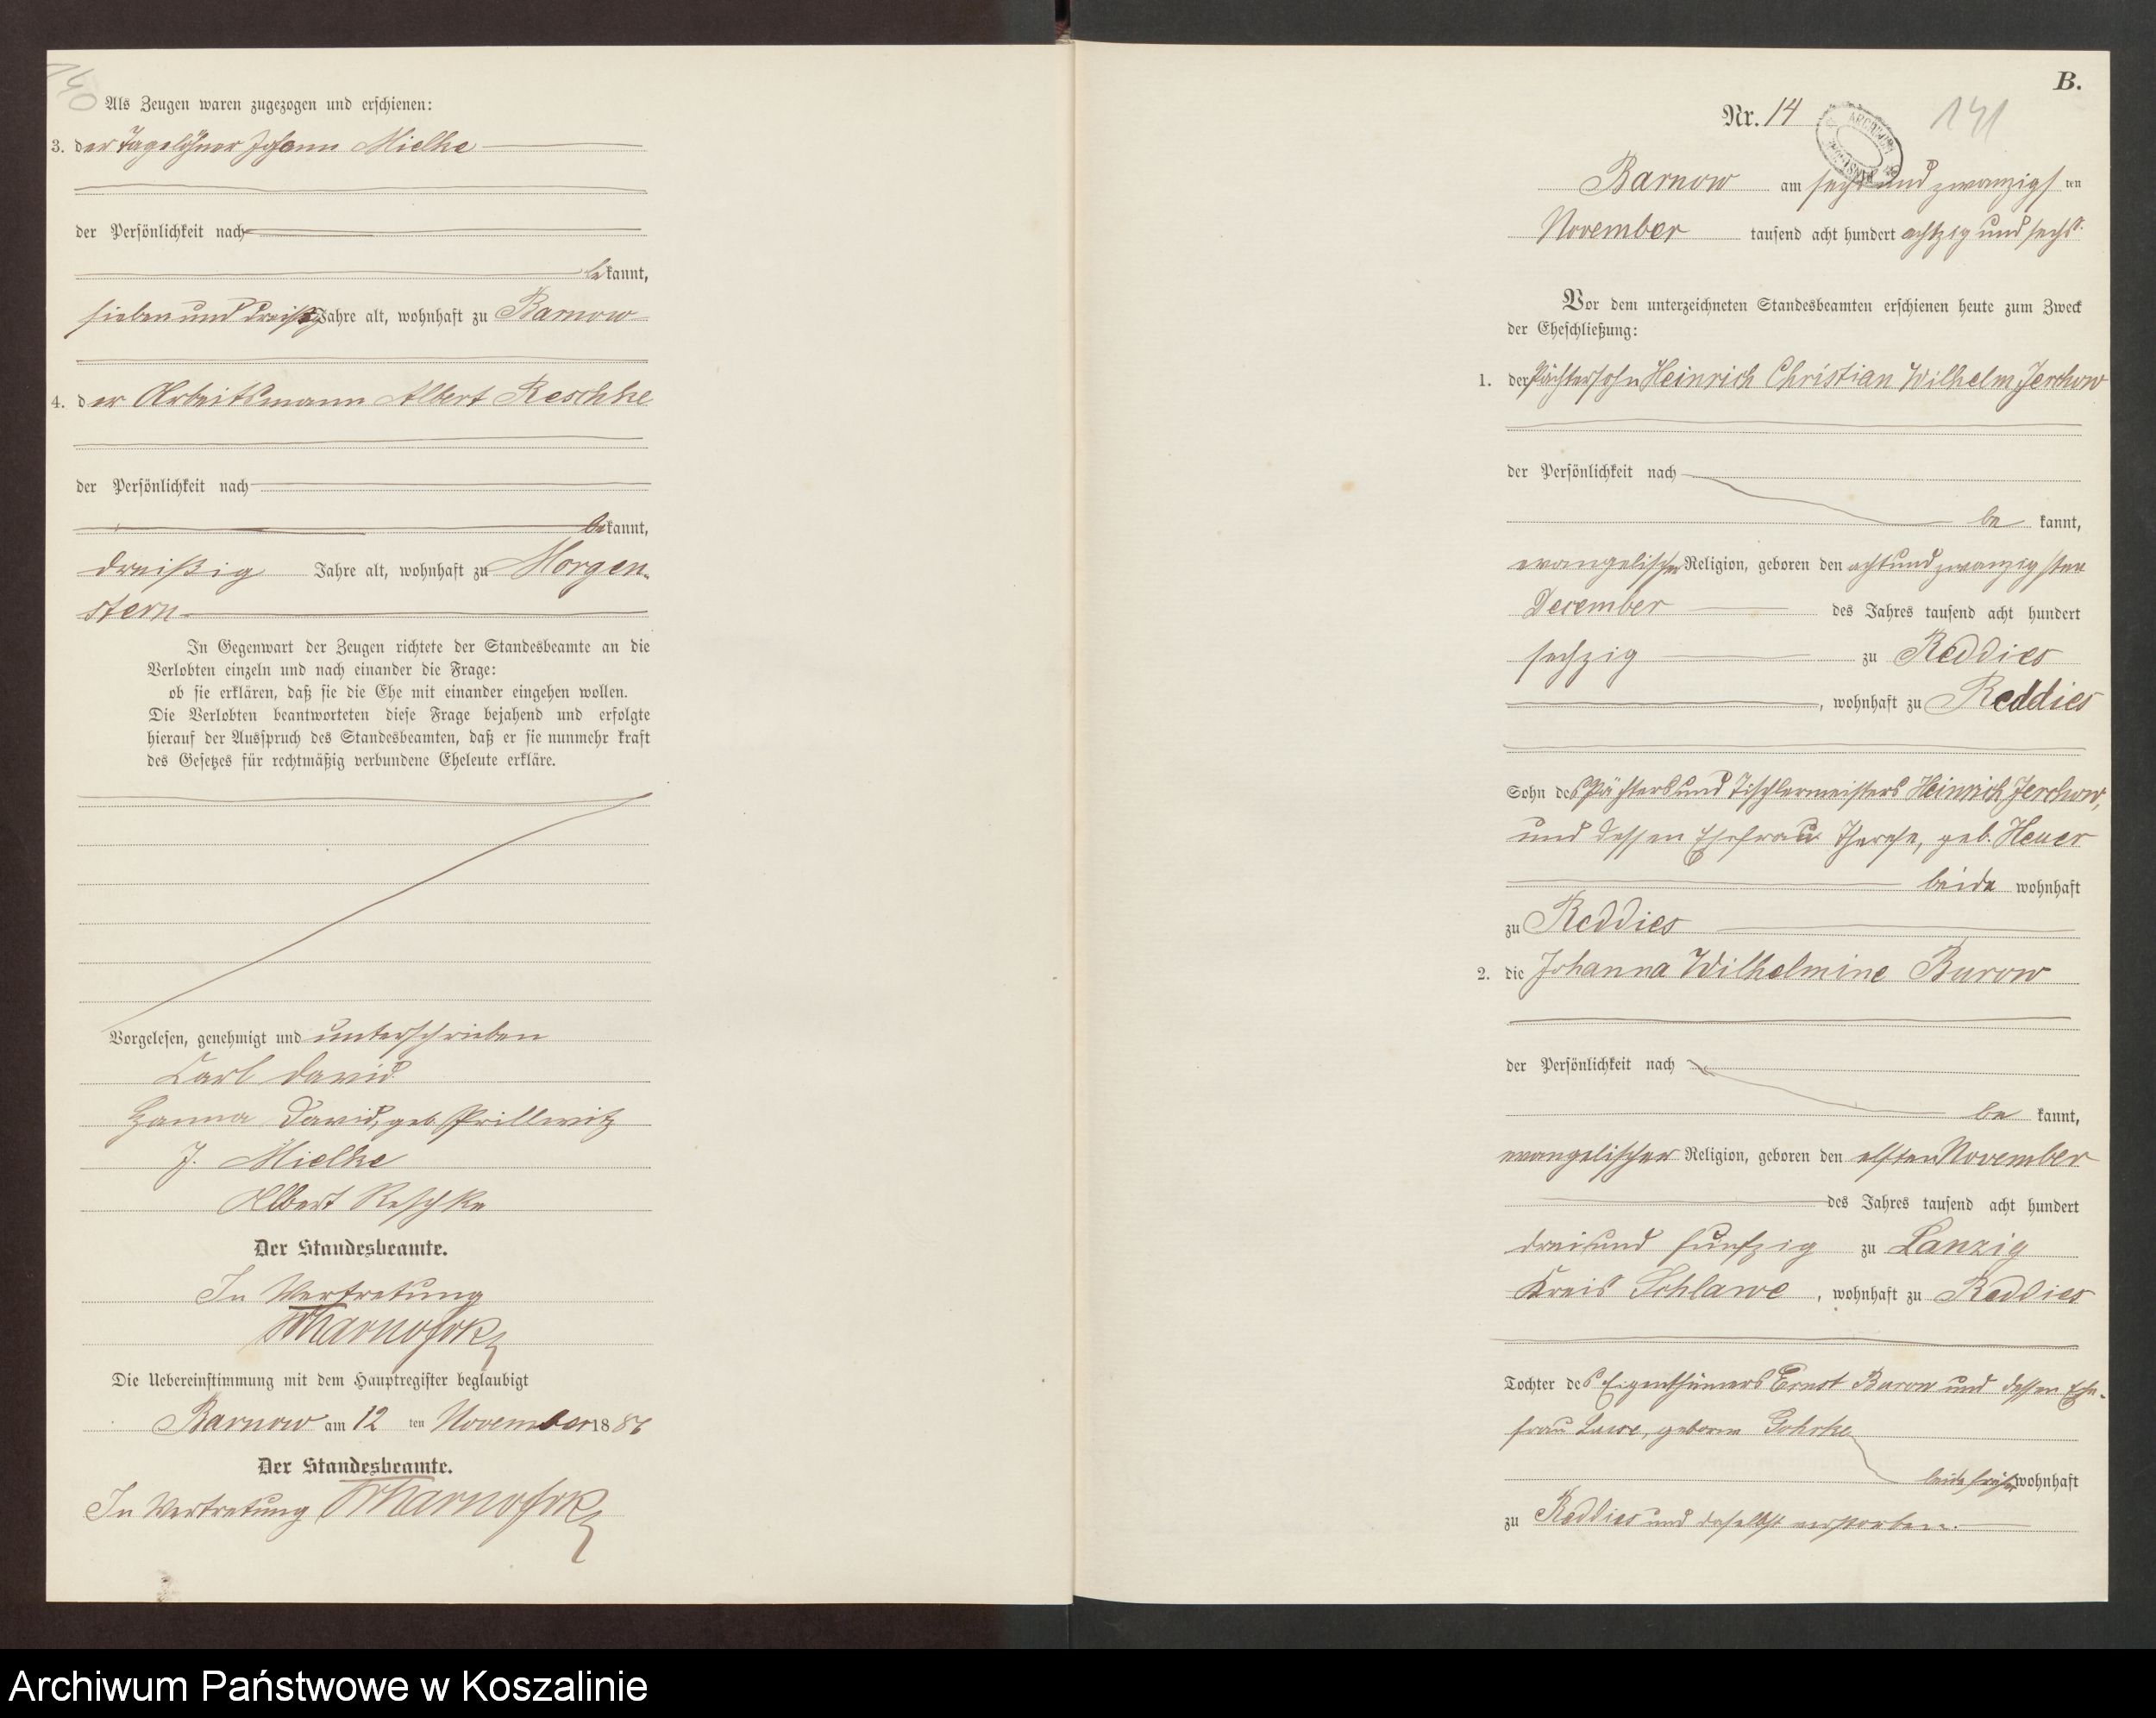 140
Als Zeugen waren zugezogen und erschienen:
3. der Tagelöhner Johann Mielke
der Persönlichkeit nach
bekannt,
sieben und dreißig Jahre alt, wohnhaft zu Barnow
4. der Arbeitsmann Albert Reschke
der Persönlichkeit nach
bekannt,
dreißig Jahre alt, wohnhaft zu Morgen-
stern
In Gegenwart der Zeugen richtete der Standesbeamte an die
Verlobten einzeln und nach einander die Frage:
ob sie erklären, daß sie die Ehe mit einander eingehen wollen.
Die Verlobten beantworteten diese Frage bejahend und erfolgte
hierauf der Ausspruch des Standesbeamten, daß er sie nunmehr kraft
des Gesetzes für rechtmäßig verbundene Eheleute erkläre.
Vorgelesen, genehmigt und unterschrieben
Carl David
Hanna David, geb. Prillwitz
J. Mielke
Albert Reschke
Der Standesbeamte.
In Vertretung
Die Uebereinstimmung mit dem Hauptregister beglaubigt
Barnow am 12 ten November 1886
Der Standesbeamte.
In Vertretung
B.
Nr. 14
141
Barnow am sechsundzwanzigsten
November tausend acht hundert achtzig und sechs.
Vor dem unterzeichneten Standesbeamten erschienen heute zum Zweck
der Eheschließung:
1. der Pächtersohn Heinrich Christian Wilhelm Jerchow
der Persönlichkeit nach
be kannt,
evangelischer Religion, geboren den achtundzwanzigsten
December des Jahres tausend acht hundert
sechzig zu Reddies
, wohnhaft zu Reddies
Sohn des Pächters und Tischlermeisters Heinrich Jerchow,
und dessen Ehefrau Therese, geb. Heuer
beide wohnhaft
zu Reddies
2. die Johanna Wilhelmine Burow
der Persönlichkeit nach
be kannt,
evangelischer Religion, geboren den elften November
des Jahres tausend acht hundert
dreiund funfzig zu Lanzig
Kreis Schlawe, wohnhaft zu Reddies
Tochter des Eigenthümers Ernst Burow und dessen Ehe-
frau geborne Gohrke
beide früher wohnhaft
zu Reddies und daselbst verstorben.
Archiwum Państwowe w Koszalinie